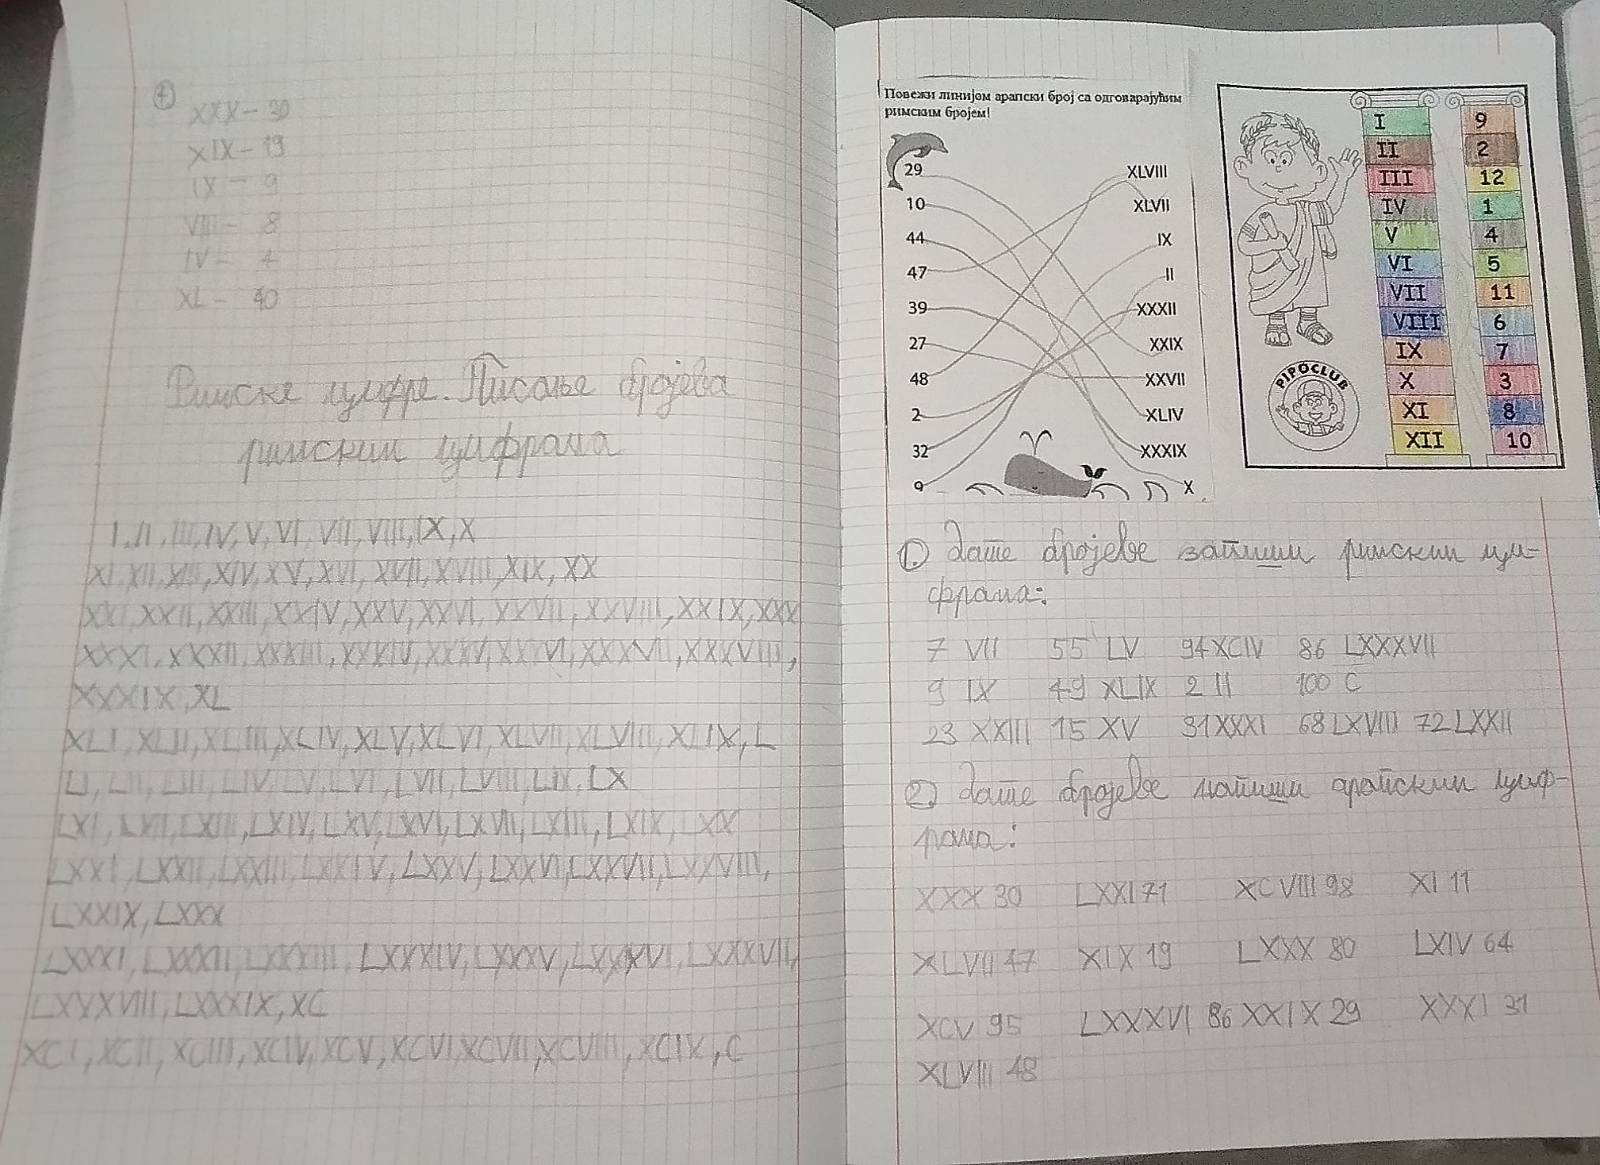 4
XXX - 30
XIX - 19
IX - 9
VIII - 8
IV - 4
XL - 40
Римске цифре. Писање бројева
римским цифрама
I, II, III, IV, V, VI, VII, VIII, IX, X
XI, XII, XIII, XIV, XV, XVI, XVII, XVIII, XIX, XX
XXI, XXII, XXIII, XXIV, XXV, XXVI, XXVII, XXVIII, XXIX, XXX
XXXI, XXXII, XXXIII, XXXIV, XXXV, XXXVI, XXXVII, XXXVIII,
XXXIX, XL
XLI, XLII, XLIII, XLIV, XLV, XLVI, XLVII, XLVIII, XLIX, L
LI, LII, LIII, LIV, LV, LVI, LVII, LVIII, LIX, LX
LXI, LXII, LXIII, LXIV, LXV, LXVI, LXVII, LXIII, LXIX, LXX
LXXI, LXXII, LXXIII, LXXIV, LXXV, LXXVI, LXXVII, LXXVIII,
LXXIX, LXXX
LXXXI, LXXXII, LXXXIII, LXXXIV, LXXXV, LXXXVI, LXXXVII,
LXXXVIII, LXXXIX, XC
XCI, XCII, XCIII, XCIV, XCV, XCVI, XCVII, XCVIII, XCIX, C
Повежи линијом арапски број са одговарајућим
римским бројем!
29 XLVIII
10 XLVII
44 IX
47 II
39 XXXII
27 XXIX
48 XXVII
2 XLIV
32 XXXIX
9 X
I 9
II 2
III 12
IV 1
V 4
VI 5
VII 11
VIII 6
IX 7
X 3
XI 8
XII 10
PIPOCLUB
1. Дате бројеве запиши римским ци-
фрама:
7 VII 55 LV 94 XCIV 86 LXXXVII
9 IX 49 XLIX 2 II 100 C
23 XXIII 15 XV 31 XXXI 68 LXVIII 72 LXXII
2. Дате бројеве напиши арапским циф-
рама:
XXX 30 LXXI 71 XCVIII 98 XI 11
XLVII 47 XIX 19 LXXX 80 LXIV 64
XCV 95 LXXXVI 86 XXIX 29 XXXI 31
XLVIII 48